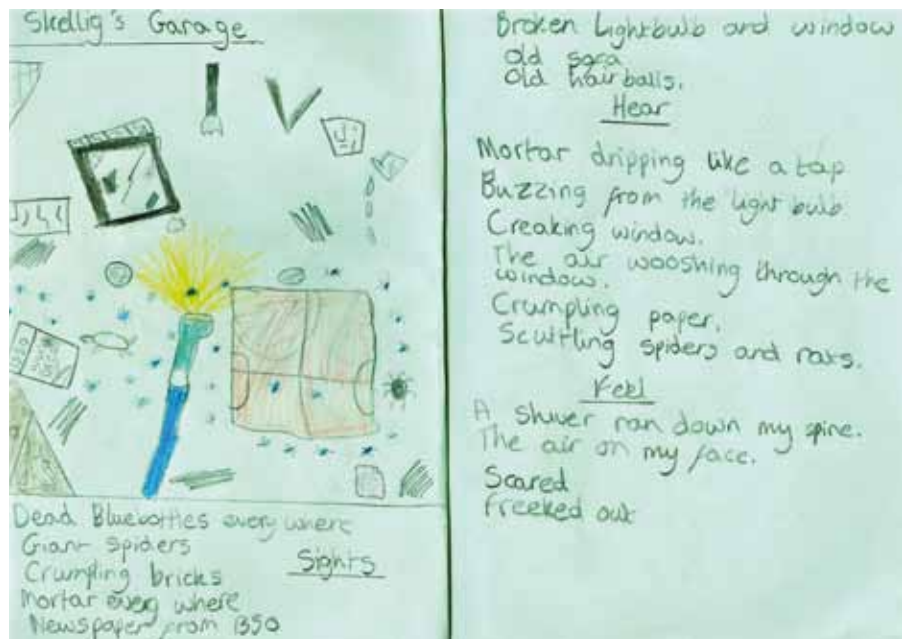 Skellig's Garage
Dead Bluebottles every where
Giant spiders
Sights
Crumpling bricks
Mortar every where
Newspaper from 1350
Broken Lightbulb and window
Old sofa
Old hairballs.
Hear
Mortar dripping like a tap
Buzzing from the light bulb
Creaking window.
The air wooshing through the
window.
Crumpling paper.
Scuttling spiders and rats.
Feel
A shiver ran down my spine.
The air on my face.
Scared
Freeked out